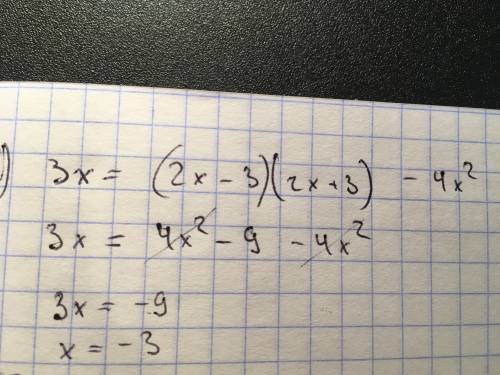 ) 3x = (2x - 3)(2x + 3) - 4x²
3x = 4x² - 9 - 4x²
3x = -9
x = -3